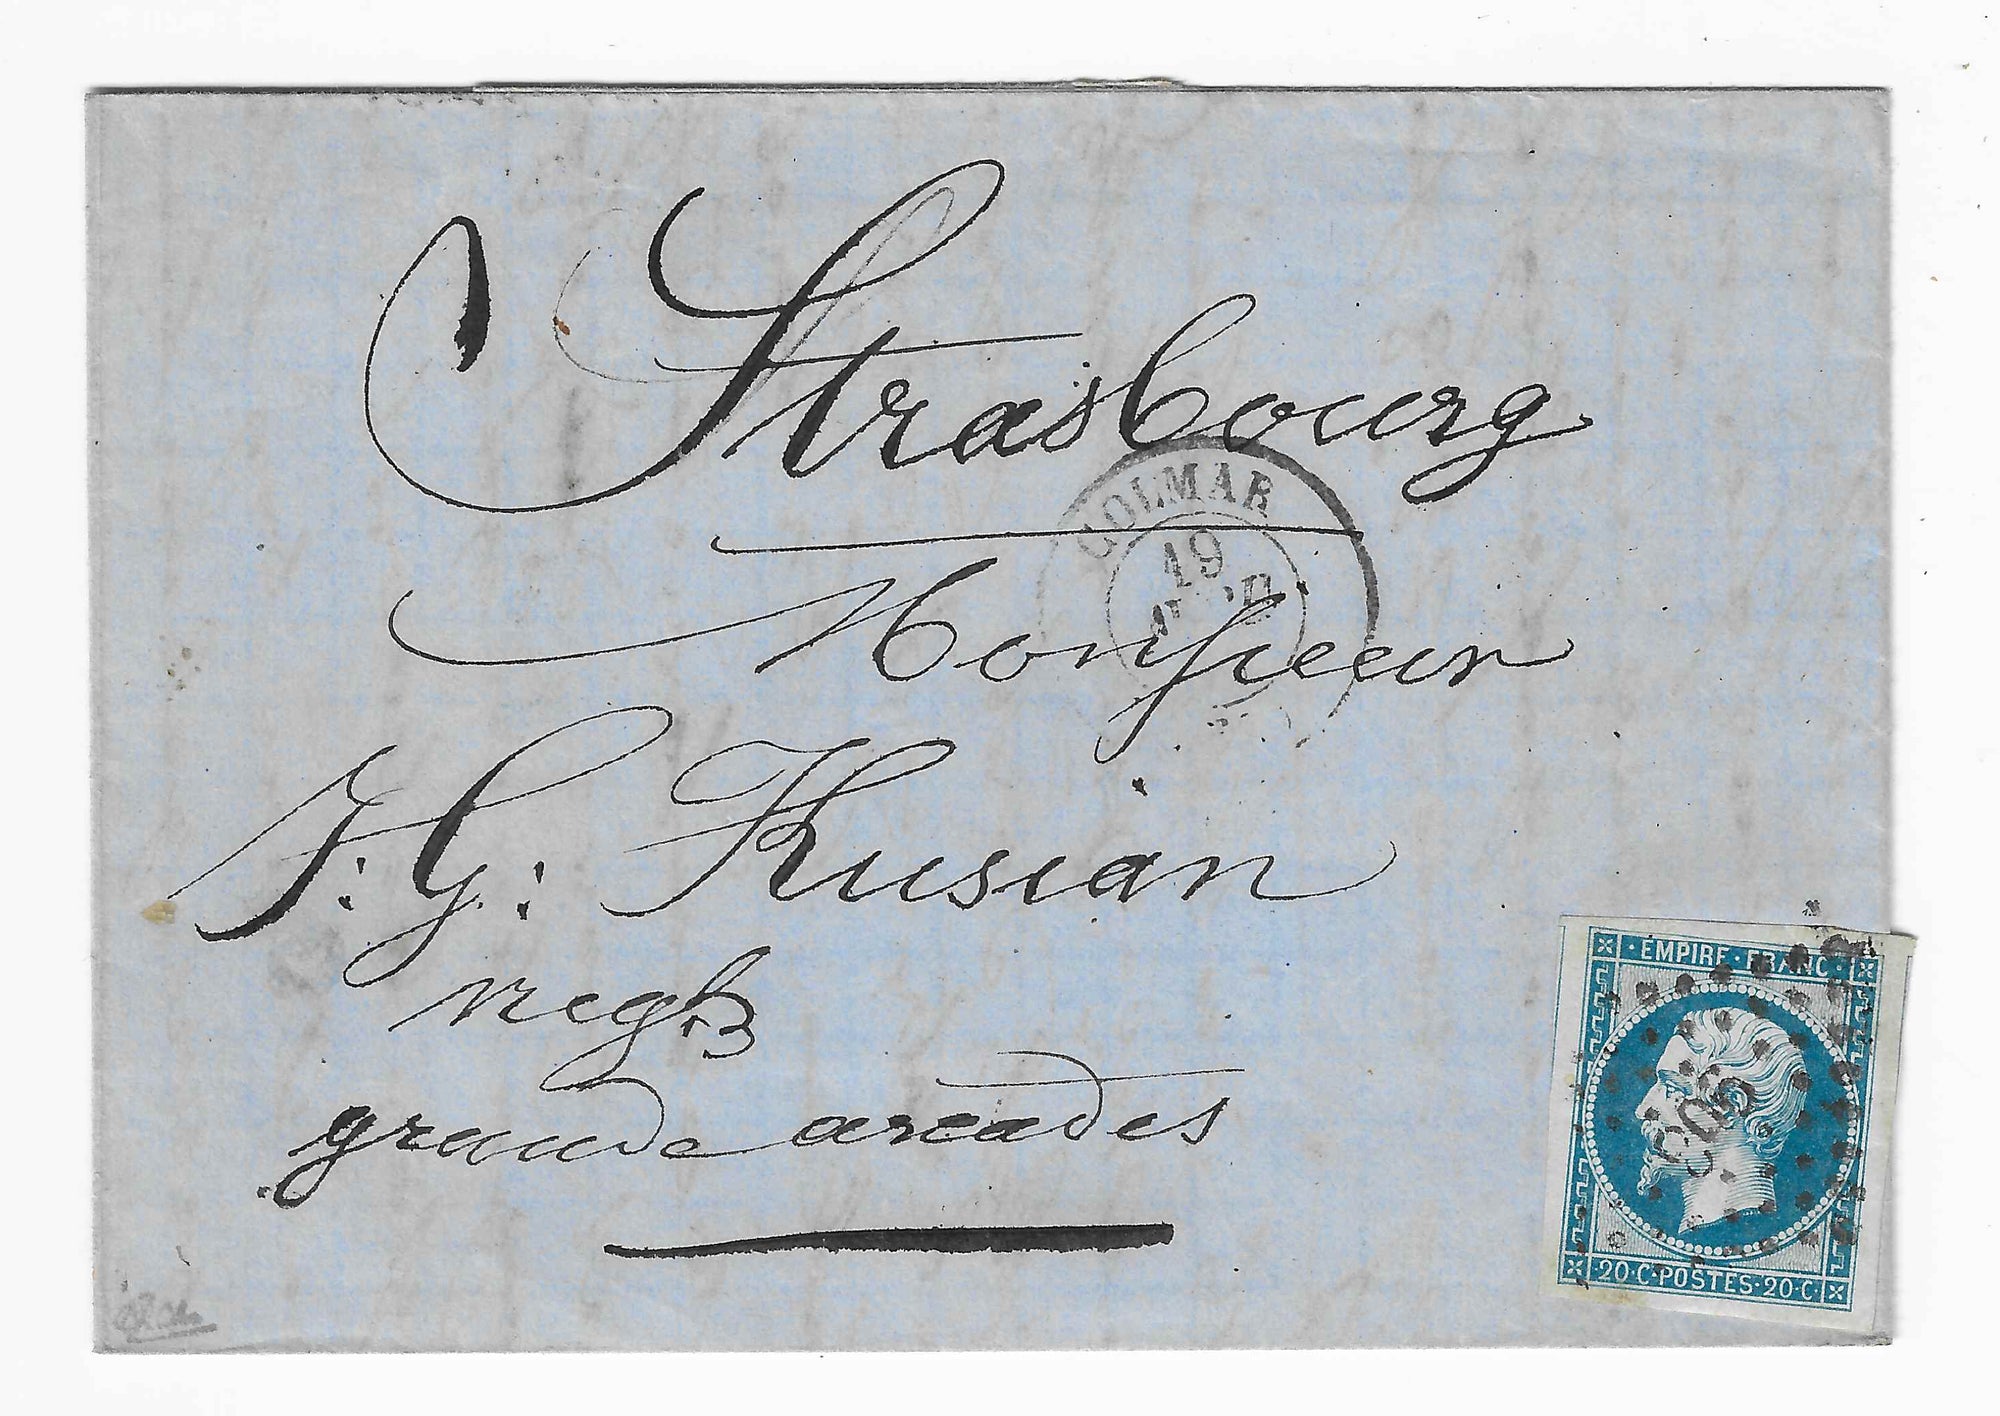 Strasbourg
COLMAR
19
Monsieur
J: G: Kusian
negt
grande arcades
EMPIRE · FRANC ·
· 20 · C · POSTES · 20 · C ·